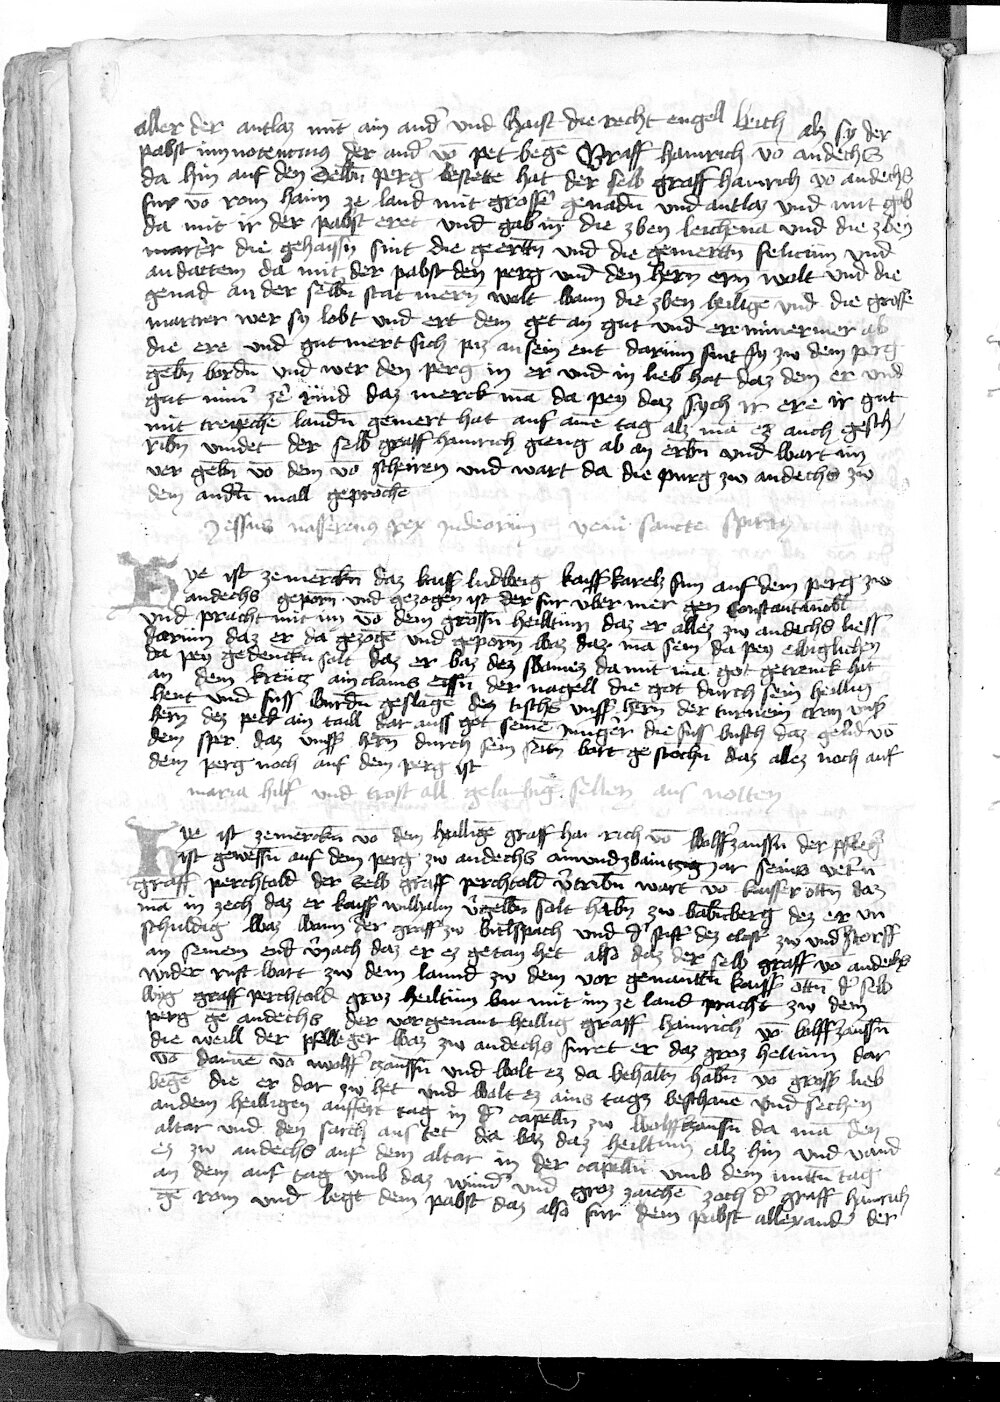 aller der antlaz mit ain and̉ und haist die recht engel kirch alz sy der
pabst innocencius der and̉ vō pet begē Graff hainrich vō andechs
da hin auf den selbñ perg bestett hat der selb graff hainrich vō andechs
fur vō rom haim ze land mit grosser genadn̄ und antlaz und mit gab
da mit ir der pabst eret und gab im die zben leichena und die zben
martr̉ die gehaissn̄ sint die geertn̄ und die gemertn̄ felicem und
audactem da mit der pabst den perg und den hern ern wolt und die
genad an der selbn̄ stat mern wolt wann die zben heilige und die grosse
martrer wer sy lobt und ert dem get an gut und ere nimermer ab
die ere und gut mert sich piz an sein ent darum sint sy zw dem perg
gebn̄ wordn̄ und wer den perg in er und in lieb hat daz dem er und
gut nim̉ ze rind daz merck mā da pey daz sych ir ere ir gut
mit landn̄ gemert hat auf aine tag alz mā ez auch gesch
ribn̄ vindet der selb graff hainrich gieng ab an erbn̄ und wart im
ver gebn̄ vō dem vō scheiren und wart da die purg zw andechs zw
dem andr̄n mall geprochē
Jessus nasserenus rex judeorum veni sancte spiritus
Hye ist zemerckn̄ daz kaiss̉ ludbeig kaiss̉ karelz sun auf dem perg zw
andechs geporn und gezogen ist der fur uber mer gen constantanobl
und pracht mit im vō dem grossn̄ heilltum daz er allez zw andechs liess
darum daz er da gezogē und geporn̄ waz daz mā sein da pey ewiglichen
da pey gedenckn̄ solt daz er waz dez swamez da mit mā got getrenck hat
an dem kreucz ain clains eissn̄ der nagell die got durch sein heillig
hent und fuss wurdn̄ geslagē den tischs unss̉ hern der turnein cron uns̉
hern dez peck ain taill dar auss got seinē jungern̉ die fuss wusch daz gelid vō
dem sper daz unss̉ hern durch sein seitn̄ wart gestochn̄ daz allez noch auf
dem perg noch auf dem perg ist
maria hilf und trost all gelaubig sellen aus notten
Hye ist zemerckn̄ vō dem heilligē graff hainrich vō wolff̉zaussn̄ der pfleg̉
ist gewessn̄ auf dem perg zw andechs ainundzbainczig jar seins veter̉n
graff perchtold der selb graff perchtold v̉tribn̄ wart vō kaisser ottn daz
mā in zech daz er kaiss̉ wilhalm v̉gebn̄ solt habn̄ zw babn̄berg dez er un
schuldig waz wann der graff zw witlspach und d̉ stift dez clost̉ zw und̉storff
an seinem end v̉jach daz er ez getan het also daz der selb graff vō andechs
wider ruft wart zw dem lannd zw dem vor genanttn̄ kaiss̉ ottn̄ d̉ selb
graff perchtold groz heiltum mit im ze land pracht zw dem
perg gē andechs der vorgenant heillig graff hainrich vō wolff̉zaussn̄
die weill der pfleger waz zw andechs furet er daz groz heltum dar
vō dannē vō wolff̉czaussn̄ und wolt ez da behaltn habn̄ vō gross̉ lieb
begē die er dar zw het und wolt ez ains tagz beschauē und sechen
an dem heilligen auffert tag in d̉ capelln̄ zw wolffczaussn̄ da mā den
altar und den sarch auf tet da waz daz heiltum alz hin und vand
ez zw andechs auf dem altar in der capelln̄ umb dem mittn̄ tag
an dem auf tag umb daz wund̉ und groz zaichē zoch d̉ graff hainrich
gē rom und legt dem pabst daz also fur dem pabst allexand̉ der